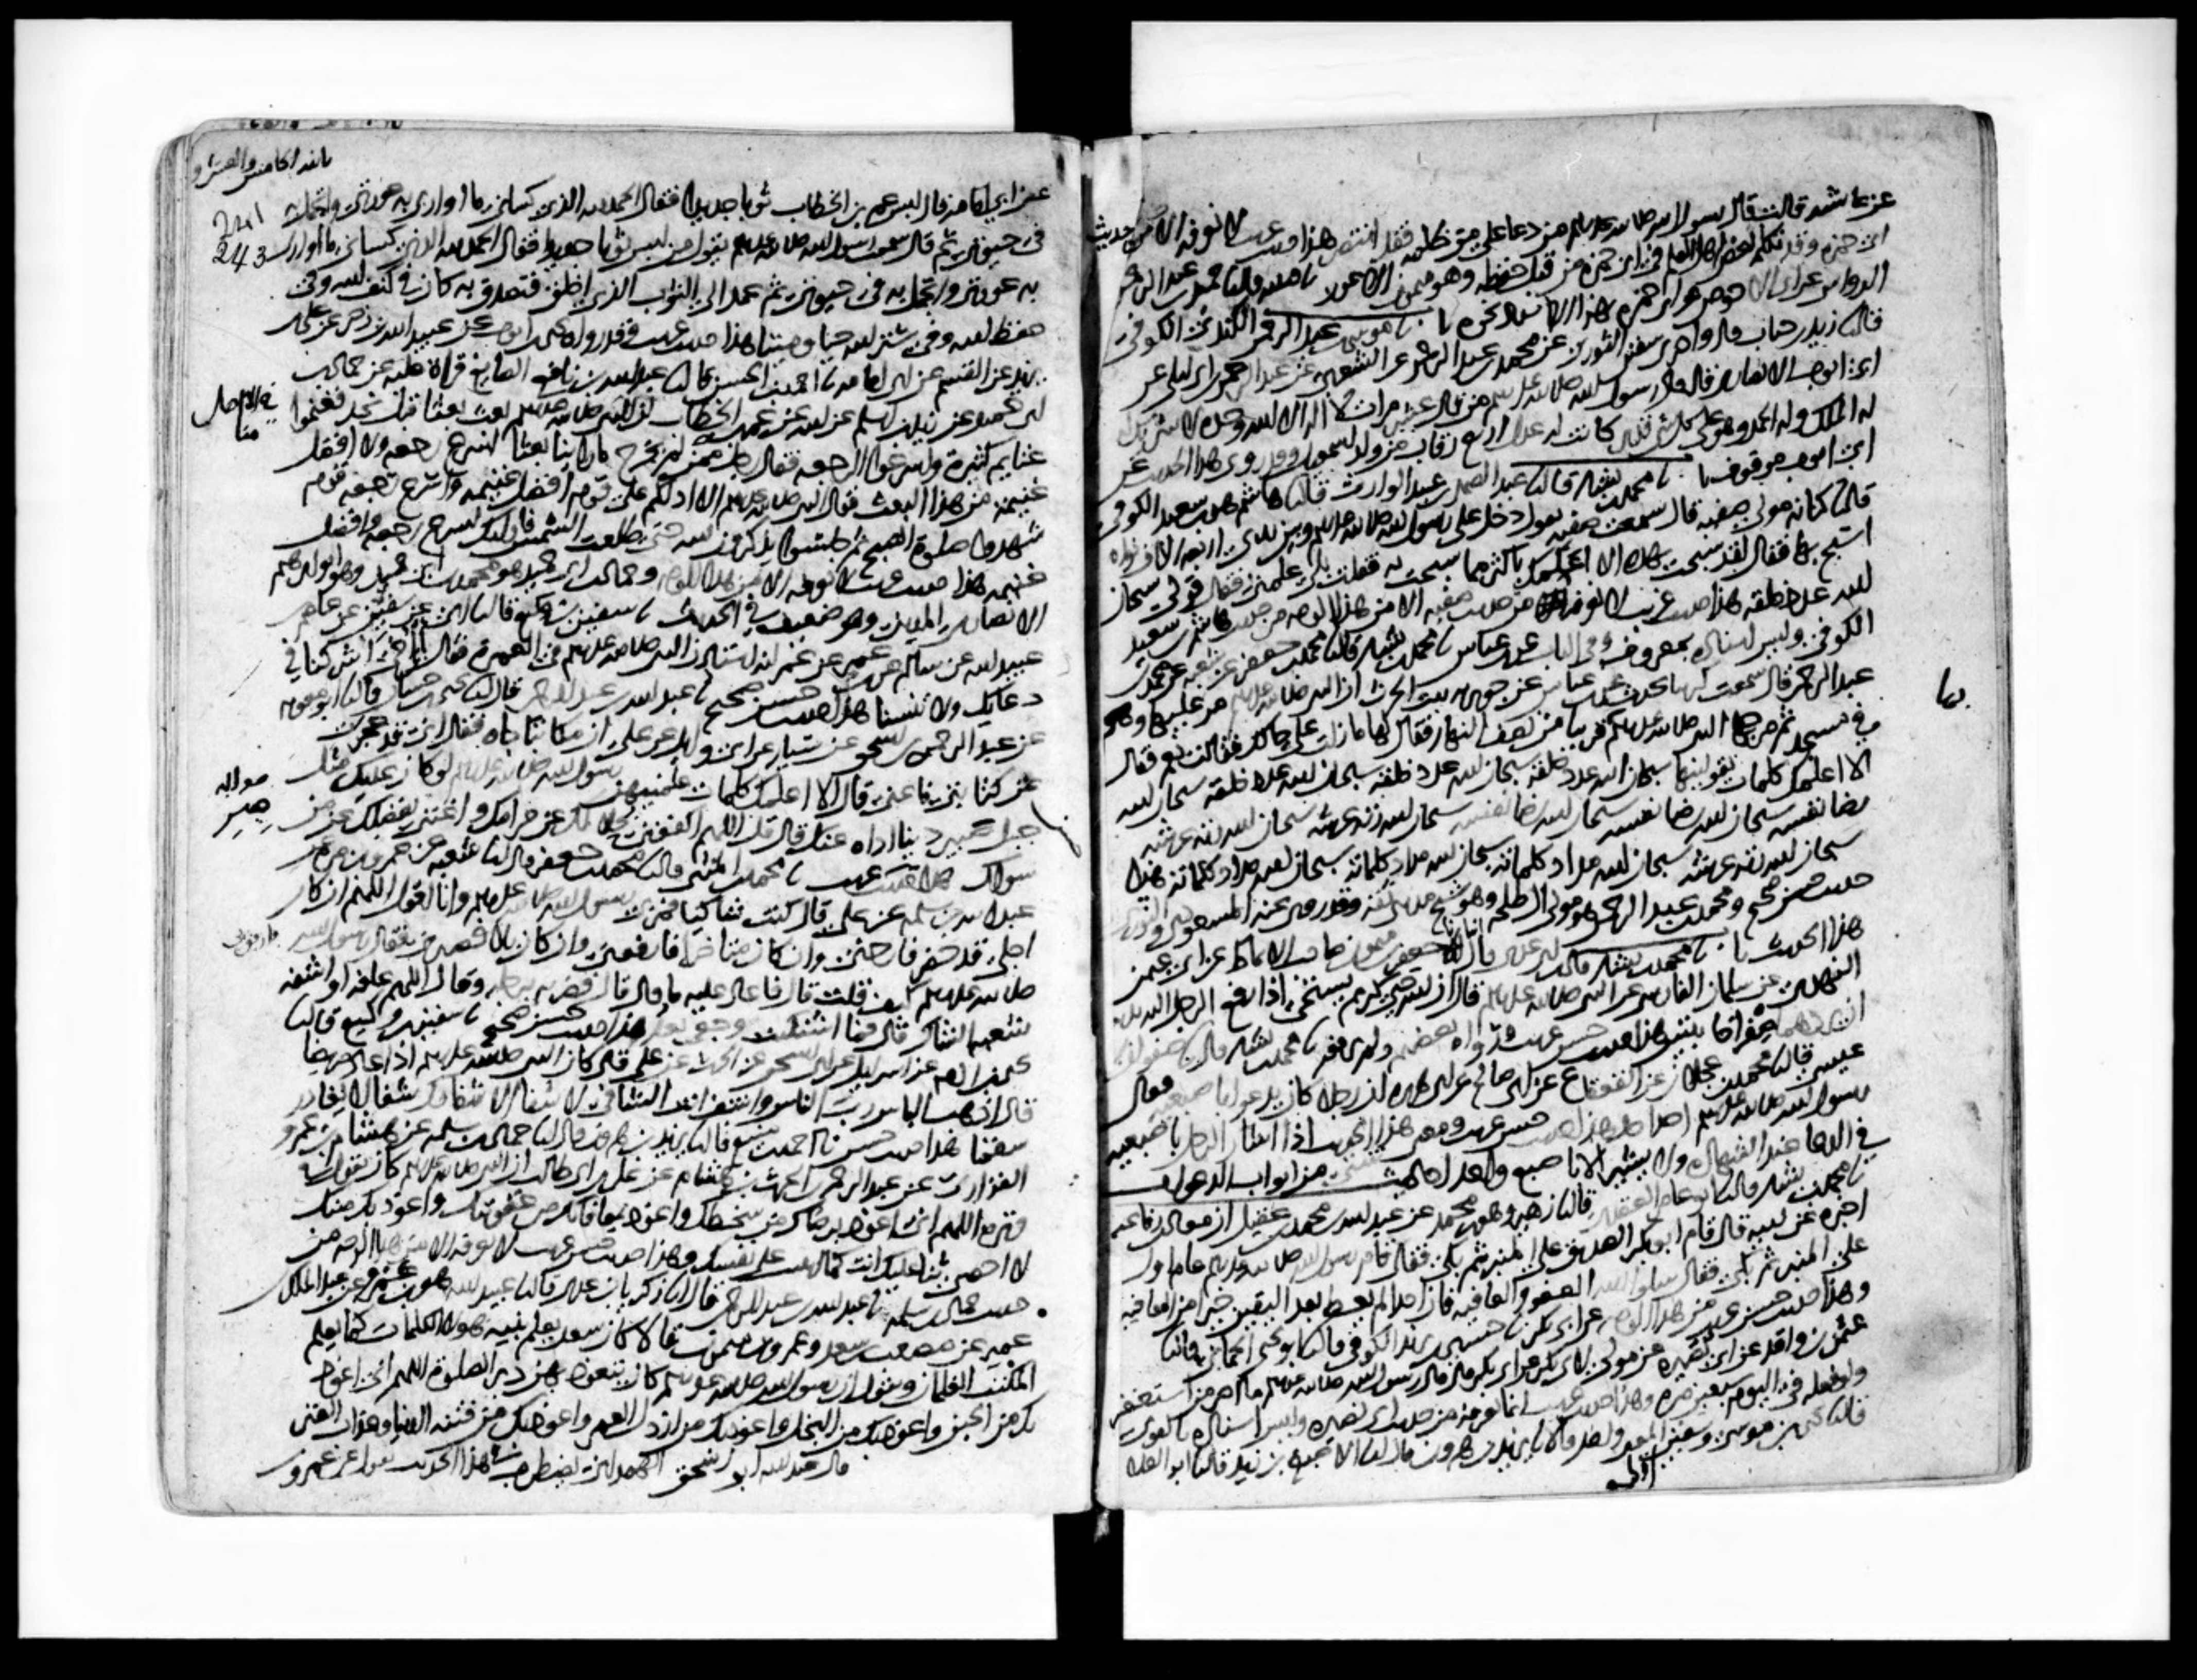 عن عائشة قالت قال رسول الله صلى الله عليه وسلم من دعا على من ظلمه فقد انتصر هذا حديث غريب لا نعرفه الا من حديث
ابي حمزة وقد تكلم بعض اهل العلم في ابي حمزة من قبل حفظه وهو ميمون الاعور
الرواسي عن ابي الاحوص عن ابي حمزة بهذا الاسناد نحوه موسى بن عبد الرحمن الكندي الكوفي
قال ثنا زيد بن حباب قال واخبرني سفيان الثوري عن محمد بن عبد الرحمن عن الشعبي عن عبد الرحمن بن ابي ليلى عن
ابي ايوب الانصاري قال قال رسول الله صلى الله عليه وسلم من قال عشر مرات لا اله الا الله وحده لا شريك
له الملك وله الحمد وهو على كل شي قدير كانت له عدل اربع رقاب من ولد اسمعيل وقد روي هذا الحديث عن
ابي ايوب موقوفا محمد بن بشار قال ثنا عبد الصمد بن عبد الوارث قال ثنا هاشم هو ابن سعيد الكوفي
قال ثنا كنانة مولى صفية قال سمعت صفية تقول دخل علي رسول الله صلى الله عليه وسلم وبين يدي اربعة الاف نواة
اسبح بها فقال لقد سبحت بهذه الا اعلمك باكثر مما سبحت به فقلت بلى علمني فقال قولي سبحان
الله عدد خلقه هذا حديث غريب لا نعرفه من حديث صفية الا من هذا الوجه من حديث هاشم بن سعيد
الكوفي وليس اسناده بمعروف وفي الباب عن ابن عباس محمد بن بشار قال ثنا محمد بن جعفر عن شعبة عن محمد بن
عبد الرحمن قال سمعت كريبا يحدث عن ابن عباس عن جويرية بنت الحرث ان النبي صلى الله عليه وسلم مر عليها وهي
في مسجد ثم مر بها النبي صلى الله عليه وسلم قريبا من نصف النهار فقال لها ما زلت على حالك فقالت نعم فقال
الا اعلمك كلمات تقولينها سبحان الله عدد خلقه سبحان الله عدد خلقه سبحان الله عدد خلقه سبحان الله
رضا نفسه سبحان الله رضا نفسه سبحان الله رضا نفسه سبحان الله زنة عرشه سبحان الله زنة عرشه
سبحان الله زنة عرشه سبحان الله مداد كلماته سبحان الله مداد كلماته سبحان الله مداد كلماته هذا
حديث حسن صحيح ومحمد بن عبد الرحمن هو مولى ال طلحة وهو شيخ مديني ثقة وقد روى عنه المسعودي والثوري
هذا الحديث محمد بن بشار قال ثنا ابن ابي عدي قال انا جعفر بن ميمون صاحب الانماط عن ابي عثمن
النهدي عن سلمان الفارسي عن النبي صلى الله عليه وسلم قال ان الله حيي كريم يستحيي اذا رفع الرجل اليه يديه
ان يردهما صفرا خائبتين هذا حديث حسن غريب ورواه بعضهم ولم يرفعه محمد بن بشار قال ثنا صفوان بن
عيسى قال ثنا محمد بن عجلان عن القعقاع عن ابي صالح عن ابي هريرة ان رجلا كان يدعو باصبعيه فقال
رسول الله صلى الله عليه وسلم احد احد هذا حديث حسن غريب ومعنى هذا الحديث اذا اشار الرجل باصبعيه
في الدعا عند الشهادة ولا يشير الا باصبع واحدة احاديث شتى من ابواب الدعوات
محمد بن بشار قال ثنا ابو عامر العقدي قال ثنا زهير وهو ابن محمد عن عبد الله بن محمد بن عقيل ان معاذ بن رفاعة
اخبره عن ابيه قال قام ابو بكر الصديق على المنبر ثم بكى فقال قام رسول الله صلى الله عليه وسلم عام اول
على المنبر ثم بكى فقال سلوا الله العفو والعافية فان احدا لم يعط بعد اليقين خيرا من العافية
وهذا حديث حسن غريب من هذا الوجه عن ابي بكر حسين بن يزيد الكوفي قال ثنا ابو يحيى الحماني قال ثنا
عثمن بن واقد عن ابي نصيرة عن مولى لابي بكر عن ابي بكر قال قال رسول الله صلى الله عليه وسلم ما اصر من استغفر
ولو فعله في اليوم سبعين مرة وهذا حديث غريب انما نعرفه من حديث ابي نصيرة وليس اسناده بالقوي
ثنا يحيى بن موسى وسفيان المعنى واحد قالا يزيد بن هرون قال ثنا الاصبغ بن زيد قال ثنا ابو العلا
بها
عن ابي امامة قال لبس عمر بن الخطاب ثوبا جديدا فقال الحمد لله الذي كساني ما اواري به عورتي واتجمل به
في حيوتي ثم قال سمعت رسول الله صلى الله عليه وسلم يقول من لبس ثوبا جديدا فقال الحمد لله الذي كساني ما اواري
به عورتي واتجمل به في حيوتي ثم عمد الى الثوب الذي اخلق فتصدق به كان في كنف الله وفي
حفظ الله وفي ستر الله حيا وميتا هذا حديث غريب وقد رواه يحيى بن ايوب عن عبيد الله بن زحر عن علي بن
يزيد عن القسم عن ابي امامة احمد بن الحسن قال ثنا عبد الله بن نافع الصايغ قراة عليه عن حماد بن
ابي حميد عن زيد بن اسلم عن ابيه عن عمر بن الخطاب ان النبي صلى الله عليه وسلم بعث بعثا قبل نجد فغنموا
غنايم كثيرة واسرعوا الرجعة فقال رجل ممن لم يخرج ما راينا بعثا اسرع رجعة ولا افضل
غنيمة من هذا البعث فقال النبي صلى الله عليه وسلم الا ادلكم على قوم افضل غنيمة واسرع رجعة قوم
شهدوا صلوة الصبح ثم جلسوا يذكرون الله حتى طلعت الشمس فاوليك اسرع رجعة وافضل
غنيمة هذا حديث غريب لا نعرفه الا من هذا الوجه وحماد بن ابي حميد هو محمد بن ابي حميد وهو ابو ابرهيم
الانصاري المديني وهو ضعيف في الحديث سفيان بن وكيع قال ثنا ابي عن سفيان عن عاصم بن
عبيد الله عن سالم عن ابن عمر عن عمر انه استاذن النبي صلى الله عليه وسلم في العمرة فقال اي اخي اشركنا في
دعايك ولا تنسنا هذا حديث حسن صحيح عبد الله بن عبد الرحمن قال ثنا يحيى بن حسان قال ثنا ابو معوية
عن عبد الرحمن بن اسحق عن سيار عن ابي وايل عن علي ان مكاتبا جاه فقال اني قد عجزت
عن كتابتي فاعني قال الا اعلمك كلمات علمنيهن رسول الله صلى الله عليه وسلم لو كان عليك مثل
جبل صبير دينا اداه عنك قال قل اللهم اكفني بحلالك عن حرامك واغنني بفضلك عن من
سواك هذا حديث حسن غريب محمد بن المثنى قال ثنا محمد بن جعفر قال ثنا شعبة عن عمرو بن مرة عن
عبد الله بن سلمة عن علي قال كنت شاكيا فمر بي رسول الله صلى الله عليه وسلم وانا اقول اللهم ان كان
اجلي قد حضر فارحني وان كان متاخرا فارفعني وان كان بلا فصبرني فقال رسول الله
صلى الله عليه وسلم كيف قلت قال فاعاد عليه ما قال قال فضربه برجله وقال اللهم عافه او اشفه
شعبة الشاك قال فما اشتكيت وجعي بعد هذا حديث حسن صحيح سفيان بن وكيع قال ثنا
يحيى بن ادم عن اسرايل عن ابي اسحق عن الحرث عن علي قال كان النبي صلى الله عليه وسلم اذا عاد مريضا
قال اذهب الباس رب الناس واشف انت الشافي لا شفا الا شفاوك شفا لا يغادر
سقما هذا حديث حسن احمد بن منيع قال ثنا يزيد بن هرون قال ثنا حماد بن سلمة عن هشام بن عمرو
الفزاري عن عبد الرحمن بن الحرث بن هشام عن علي بن ابي طالب ان النبي صلى الله عليه وسلم كان يقول في
وتره اللهم اني اعوذ برضاك من سخطك واعوذ بمعافاتك من عقوبتك واعوذ بك منك
لا احصي ثنا عليك انت كما اثنيت على نفسك وهذا حديث حسن غريب لا نعرفه الا من هذا الوجه من
حديث حماد بن سلمة عبد الله بن عبد الرحمن قال انا زكريا بن عدي قال ثنا عبيد الله هو ابن عمرو عن عبد الملك بن
عمير عن مصعب بن سعد وعمرو بن ميمون قالا كان سعد يعلم بنيه هولا الكلمات كما يعلم
المكتب الغلمان ويقول ان رسول الله صلى الله عليه وسلم كان يتعوذ بهن دبر الصلوة اللهم اني اعوذ
بك من الجبن واعوذ بك من البخل واعوذ بك من ارذل العمر واعوذ بك من فتنة الدنيا وعذاب القبر
قال عبد الله ابو اسحق الهمداني يضطرب في هذا الحديث يقول عن عمرو بن
241
243